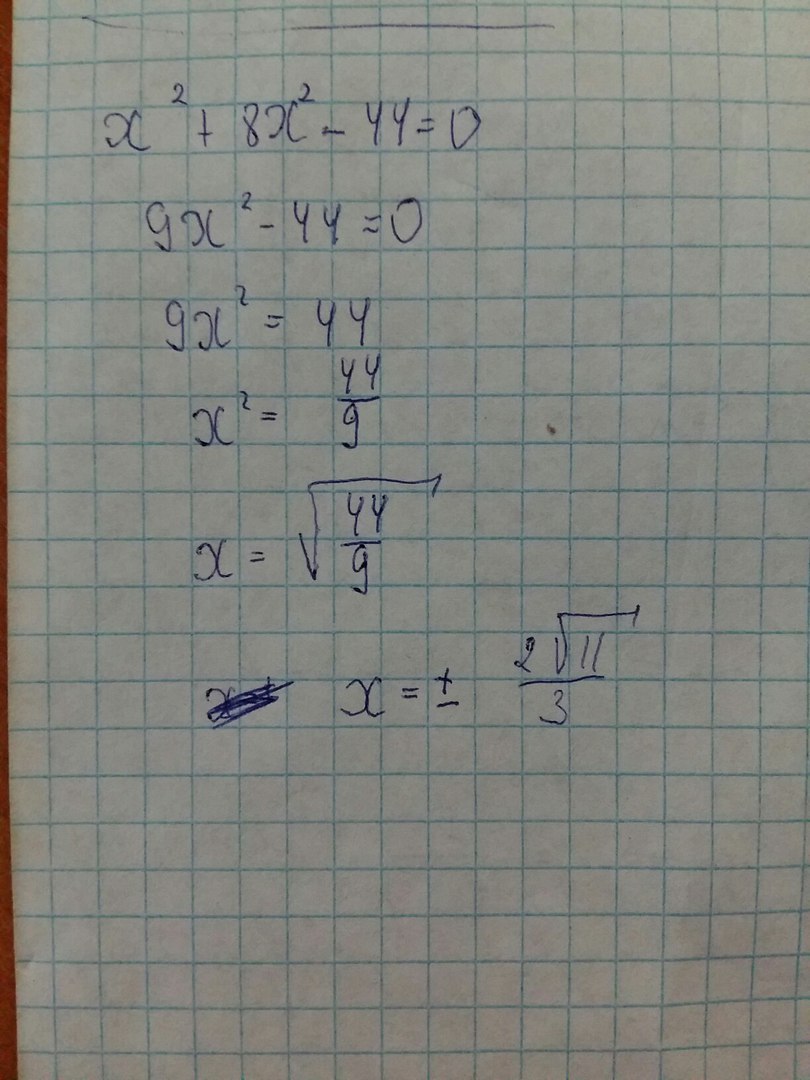 x² + 8x² - 44 = 0
9x² - 44 = 0
9x² = 44
x² = 44/9
x = √(44/9)
x = ± 2√11/3